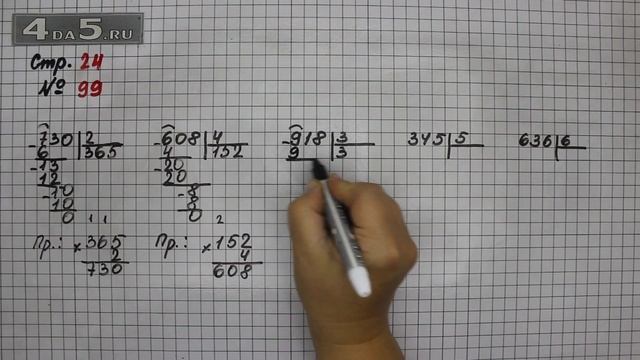 4DA5.RU
Стр. 24
№ 99
-730 | 2
6 | 365
-13
12
-10
10
0
Пр.: 1 1
× 365
2
730
-608 | 4
4 | 152
-20
20
-8
8
0
Пр.: 2
× 152
4
608
-918 | 3
9 | 3
345 | 5
636 | 6